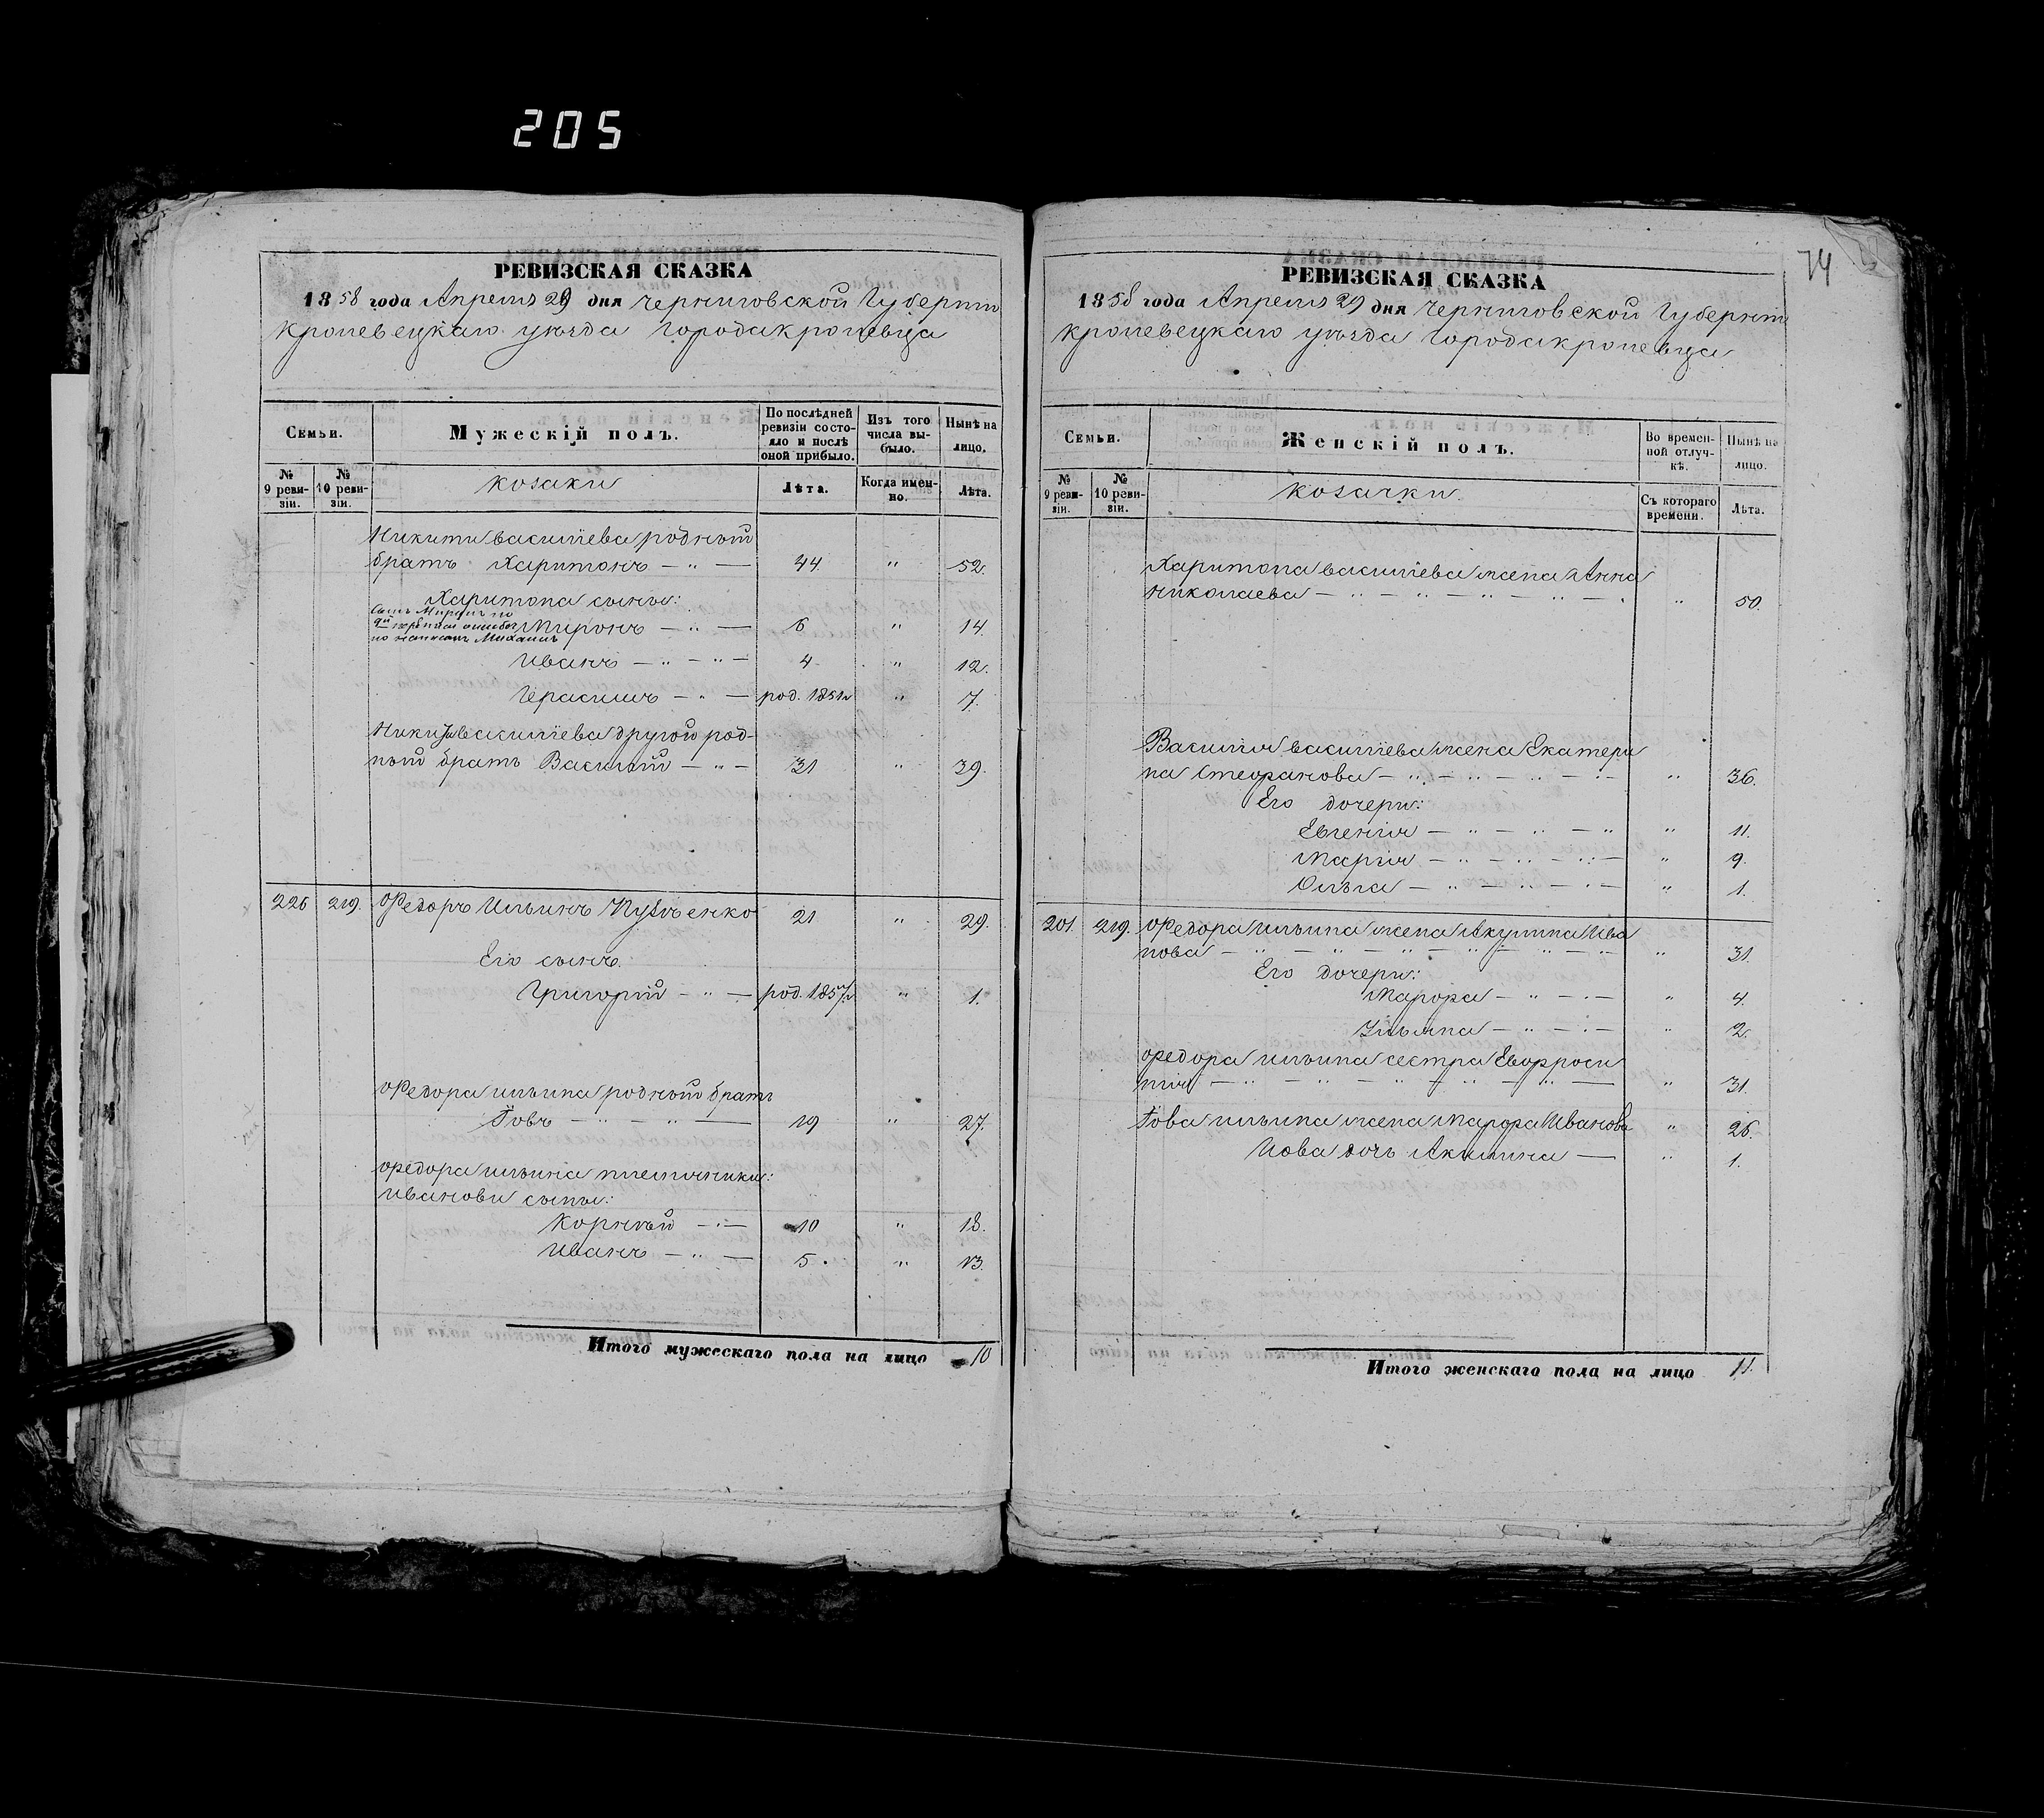 205
РЕВИЗСКАЯ СКАЗКА
1858 года Апреля 29 дня Черниговской Губерніи
Кролевецкаго уѣзда Города Кролевца
Семьи.
Мужескій полъ.
По послѣдней ревизіи состояло и послѣ оной прибыло.
Изъ того числа выбыло.
Нынѣ на лицо.
№ 9 ревизіи.
№ 10 ревизіи.
козаки
Лѣта.
Когда именно.
Лѣта.
Никиты васильева родный
братъ Харитонъ — " — 44 " 52.
Харитона сыны:
Сынъ Миронъ по
9й ревизіи ошибоч
но написанъ Михаилъ
Миронъ — " — 6 " 14.
Иванъ — " — " — 4 " 12.
Герасимъ — " — род. 1851 " 7.
Никиты васильева другой род-
ный братъ Василий — " — 31 " 39.
226 219. Федоръ Ильинъ 21 " 29.
Его сынъ.
Григорій — " — род. 1857 " 1.
Федора ильина родный братъ
Іовъ — " — " — 19 " 27.
Федора ильина племянники:
Ивановы сыны:
Корнѣй — " — 10 " 18.
Иванъ — " — 5 " 13.
Итого мужескаго пола на лицо 10
74
РЕВИЗСКАЯ СКАЗКА
1858 года Апреля 29 дня Черниговской Губерніи
Кролевецкаго уѣзда Города Кролевца
Семьи.
Женскій полъ.
Во временной отлучкѣ.
Нынѣ на лицо.
№ 9 ревизіи.
№ 10 ревизіи.
козачки.
Съ котораго времени.
Лѣта.
Харитона васильева жена Анна
Николаева — " — " — " — " — " 50.
Василия васильева жена Екатери
на Стефанова — " — " — " — " — " 36.
Его дочери:
Евгенія — " — " — " " 11.
Марія — " — " — " — " 9.
Ольга — " — " — " — " 1.
201. 219. Федора ильина жена Акулина Ива
нова — " — " — " — " — " — " — " 31.
Его дочери:
Марфа — " — " — " 4.
Ульяна — " — " — " 2.
Федора ильина сестра Евфроси
нія — " — " — " — " — " — " 31.
Іова ильина жена Марфа Иванова " 26.
Иова дочь Акилина — " 1.
Итого женскаго пола на лицо 11.